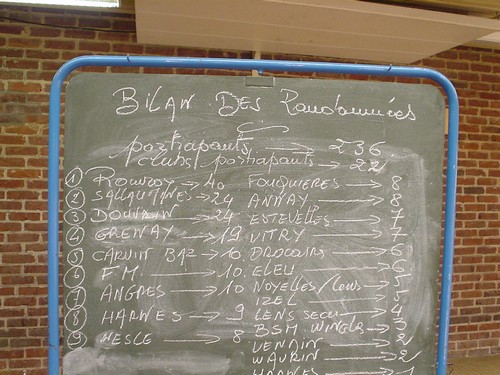 BILAN DES Randonnées
participants → 236
clubs participants → 22
1 ROUVROY → 40 FOUQUIERES → 8
2 SALLAUMINES → 24 ANNAY → 8
3 DOUVRIN → 24 ESTEVELLES → 7
4 GRENAY → 19 VITRY → 7
5 CARVIN → 10 DROCOURT → 6
6 F.M. → 10 ELEU → 6
7 ANGRES → 10 NOYELLES/LENS → 5
8 HARNES → 9 IZEL → 5
9 NESLE → 8 LENS → 4
BSM. WINGLES → 3
VENDIN → 2
WAVRIN → 2
HARNES → 1